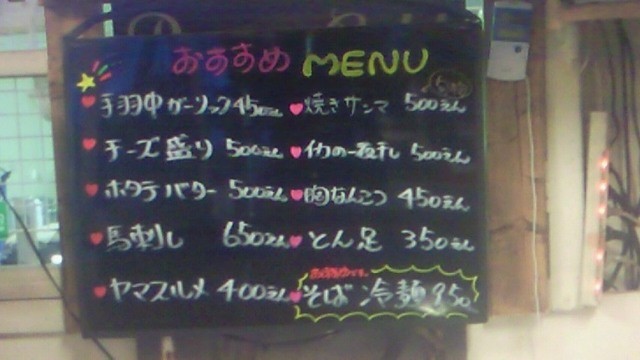 おすすめ MENU
手羽中ガーリック 450えん
焼きサンマ 500えん
チーズ盛り 500えん
イカの一夜干し 500えん
ホタテバター 500えん
胸なんこつ 450えん
馬刺し 650えん
とん足 350えん
ヤマスルメ 400えん
そば冷麺 950